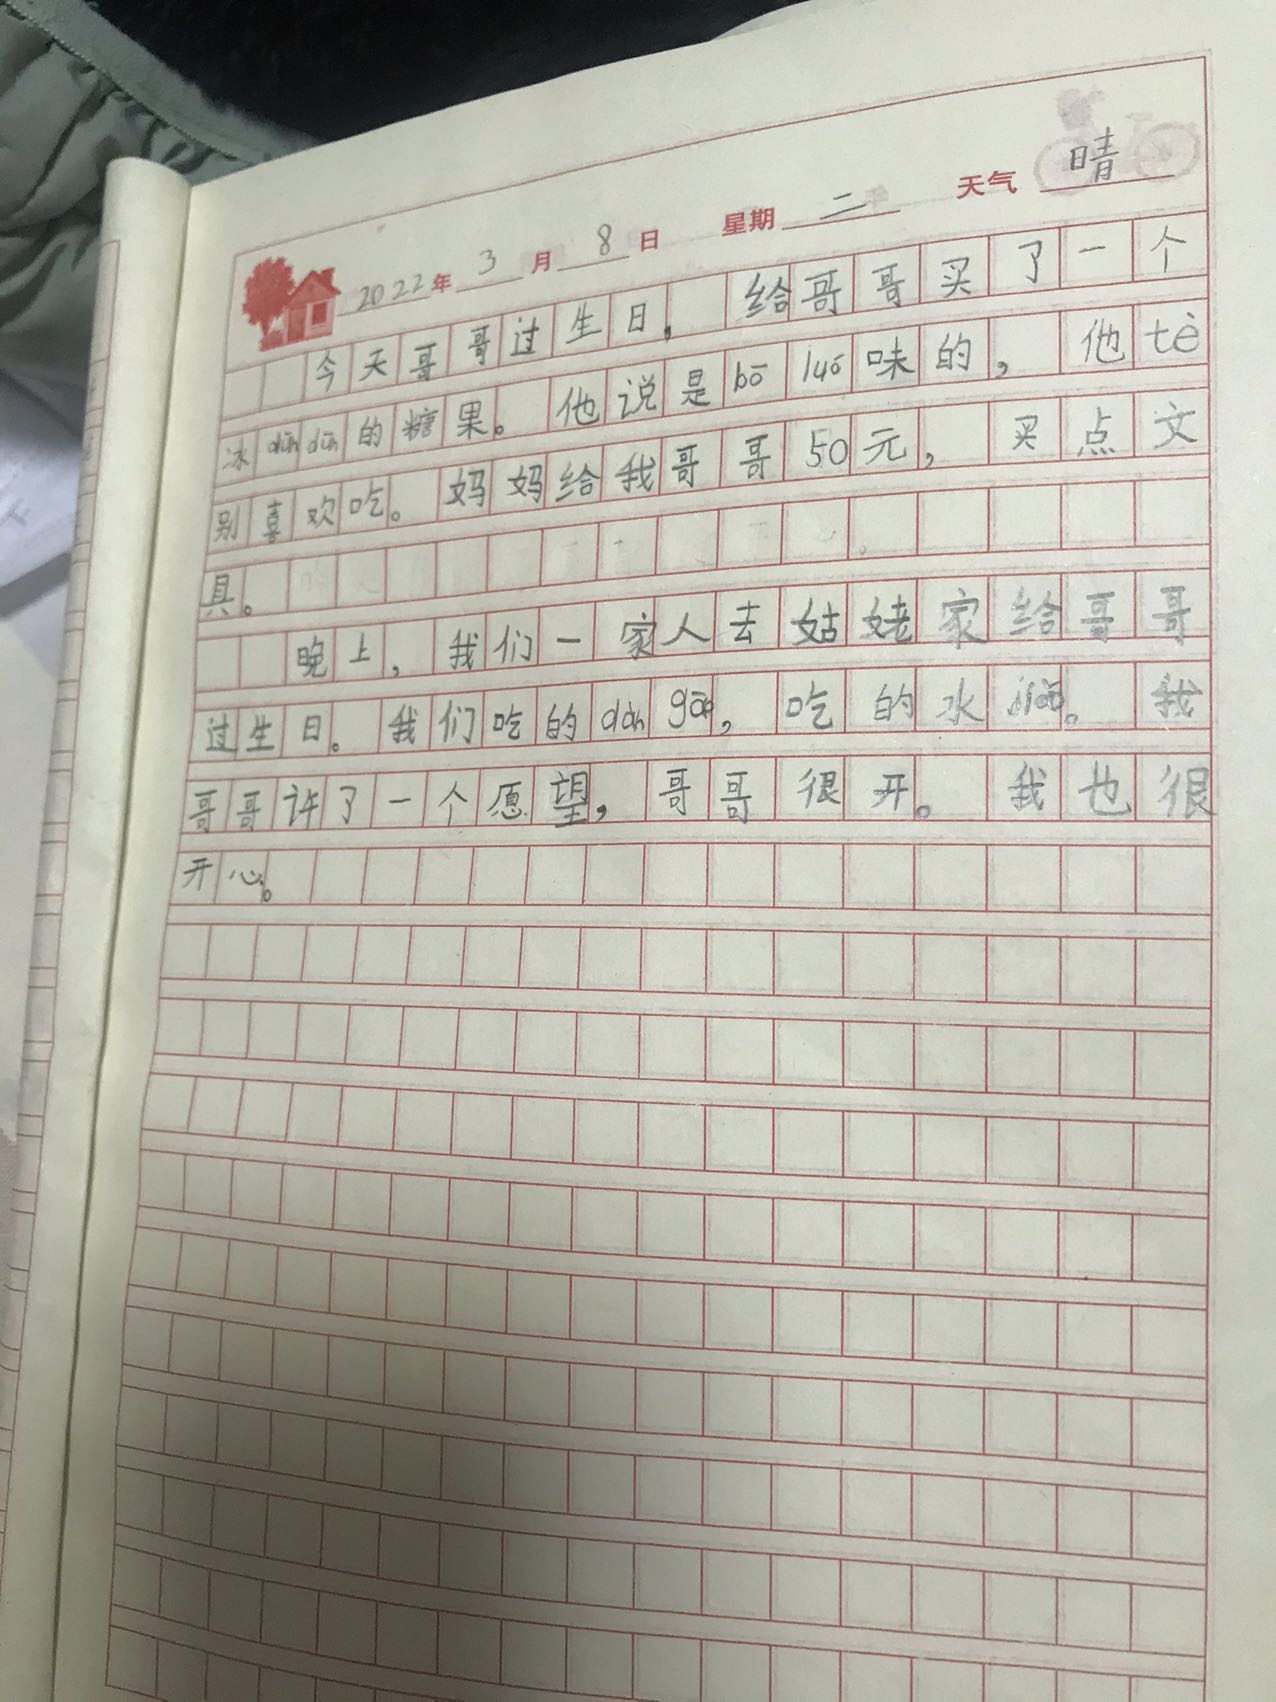 2022年3月8日 星期二 天气晴
今天哥哥过生日，给哥哥买了一个
冰dūn dūn的糖果。他说是bō luó味的，他tè
别喜欢吃。妈妈给我哥哥50元，买点文
具。
晚上，我们一家人去姑姥家给哥哥
过生日。我们吃的dàn gāo，吃的水jiǎo。我
哥哥许了一个愿望，哥哥很开。我也很
开心。